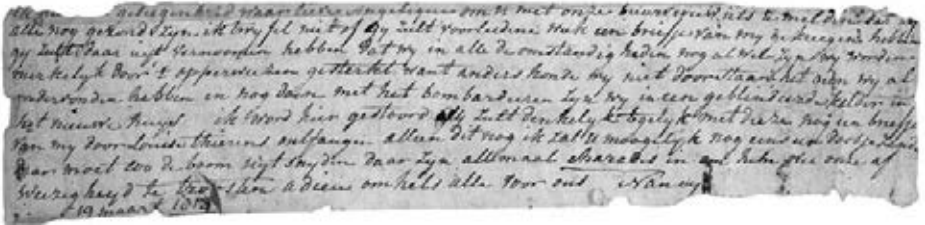 gelegenheid waar lieve om u met onze te melden dat wy
alle nog gezond zyn ik twyfel niet of gy zult voorledene week een briefje van my gekreegen hebben
gy zult daar uyt vernoomen hebben dat wy in alle de omstandigheden nog al wel zyn wy worden
merkelyk door 't opperweezen gesterkt want anders konde wy niet doorstaan het geen wy al
ondervonden hebben en nog doen met het bombarderen zyn wy in een geblindeerde kelder in
het nieuwe huys ik word hier gestoord gy zult denkelyk tegelyk met deeze nog een briefje
van my door Louise Thierens ontfangen alleen dit nog ik zal u moogelyk nog eens een doosje zende
daar moet de boom uyt snyden daar zyn allemaal charades in om hem over onze af
weezigheyd te troosten adieu omhels alle voor ons Nancy
19 maart